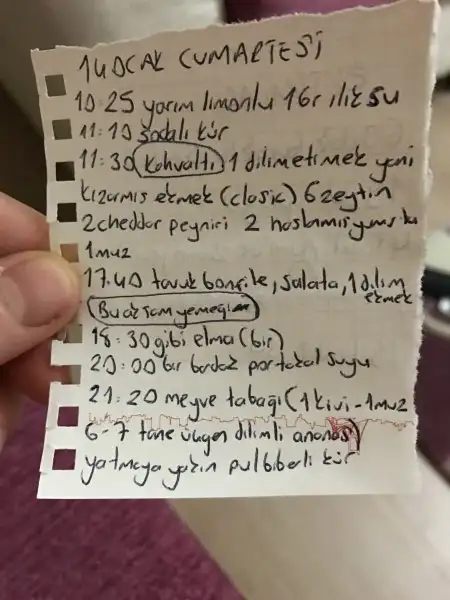 14 OCAK CUMARTESİ
10:25 yarım limonlu 1 Gr ılık su
11:10 sodalı kür
11:30 Kahvaltı 1 dilim etimek yani
kızarmış ekmek (classic) 6 zeytin
2 cheddar peyniri 2 haslanmış yumurta
1 muz
17.40 tavuk bonfile, salata, 1 dilim
ekmek
Bu akşam yemeği
18:30 gibi elma (bir)
20:00 bir bardak portakal suyu
21:20 meyve tabağı (1 kivi - 1 muz
6-7 tane üçgen dilimli ananas)
yatmaya yakın pul biberli kür